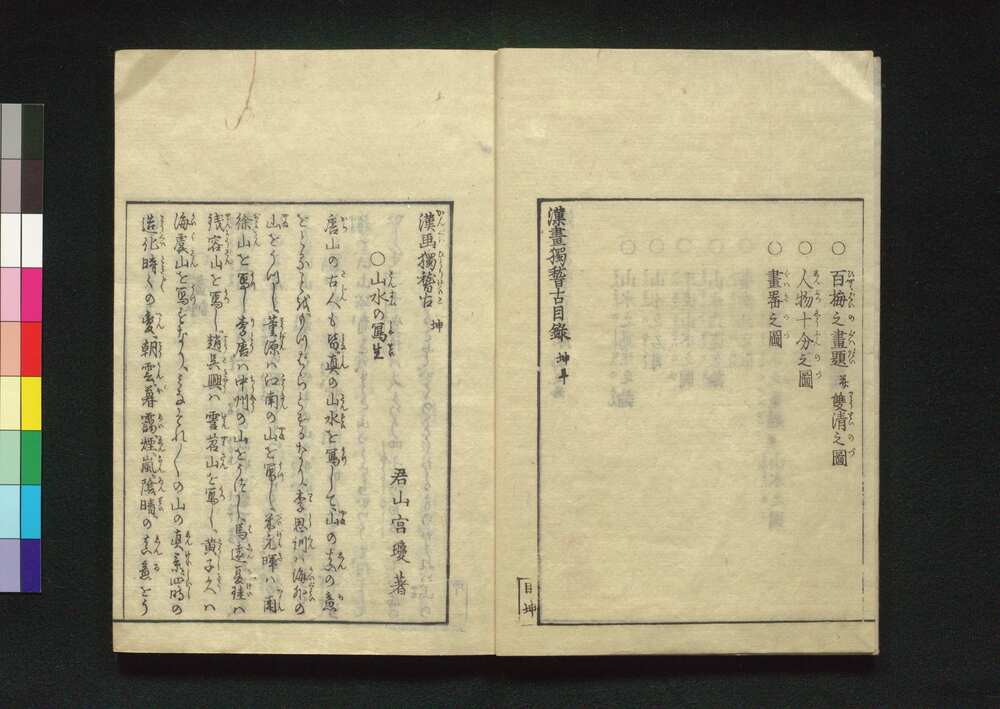 ○百梅之畫題 並 雙清之圖
○人物十分之圖
○畫器之圖
漢畫獨稽古目録 坤
目坤
漢画獨稽古 坤
君山宮瓊著
○山水の寫生
唐山の古人も皆真の山水を寫して山の真の意
李思訓ハ海外の
山をうつし董源ハ江南の山を寫し米元暉ハ南
徐山を寫し李唐ハ中州の山をうつし馬遠夏珪ハ
錢唐山を寫し趙呉興ハ雲苕山を寫し黄子久ハ
海虞山を寫せしなり その山の真景四時の
造化時〱の變朝雲暮靄煙嵐陰晴の真意をう